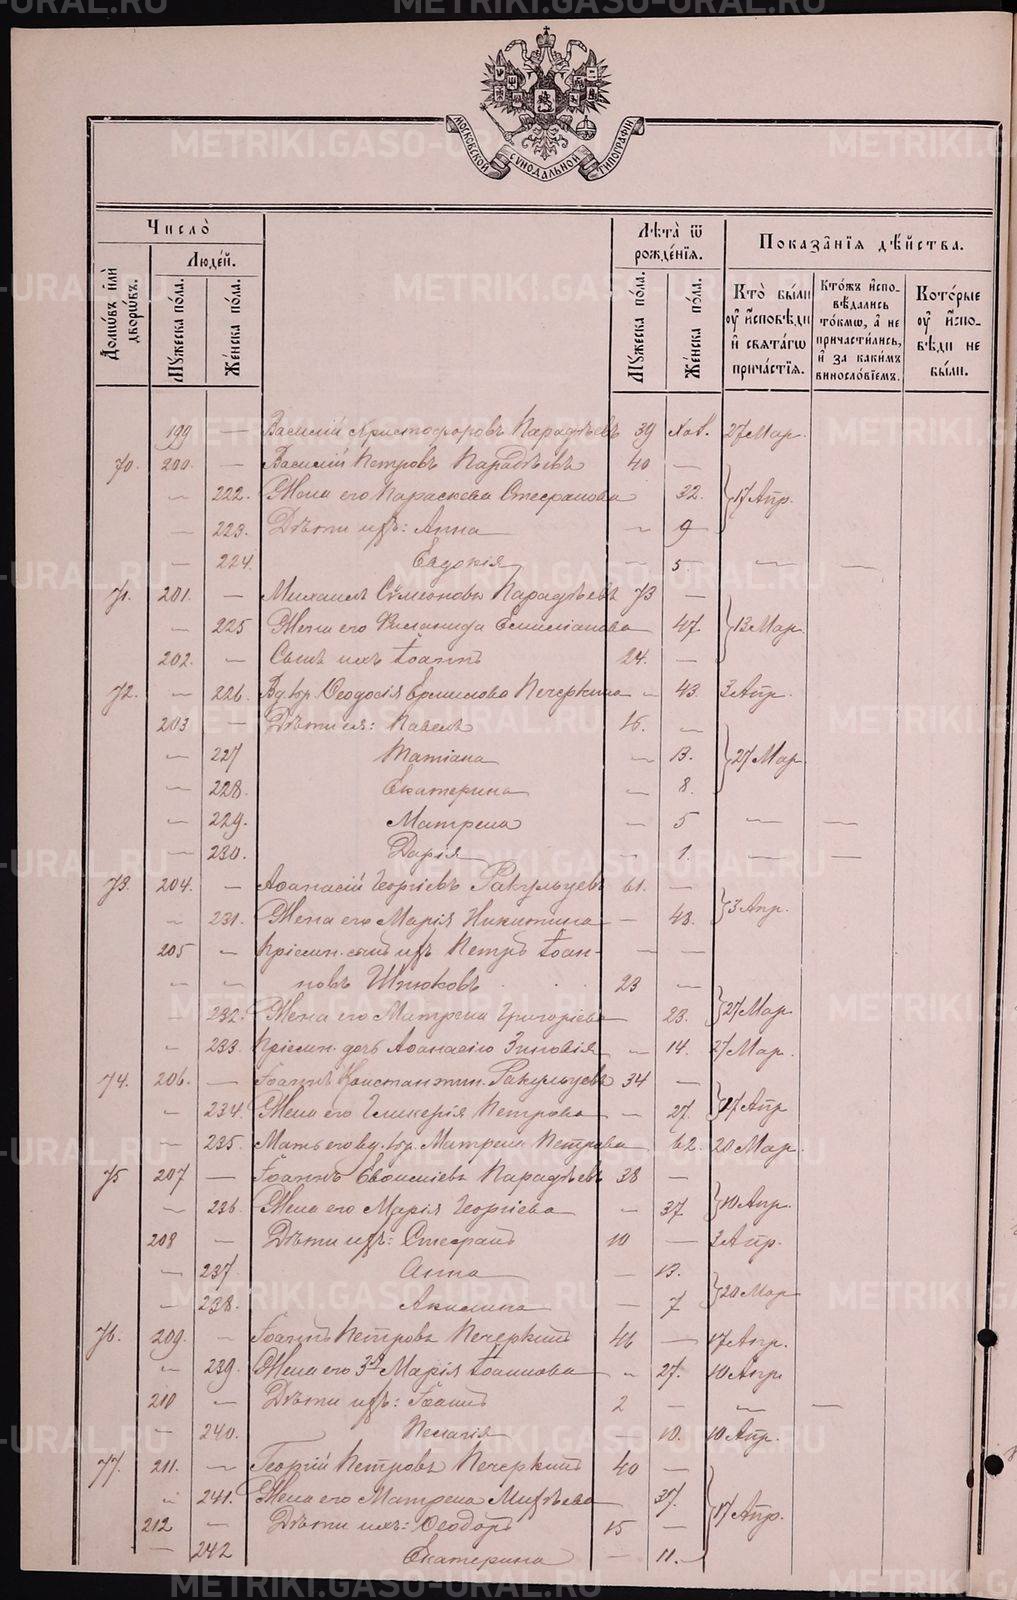 МОСКОВСКОЙ СѴНОДАЛЬНОЙ ТИПОГРАФІИ
Число̀
Домѡвъ и҆лѝ дворѡвъ.
Люде́й.
Мꙋжеска по́ла.
Же́нска по́ла.
Лѣ́та ѿ рожде́нїѧ.
Мꙋжеска по́ла.
Же́нска по́ла.
Показа̑нїѧ дѣ́йства.
Кто̀ бы́ли ᲂу҆ и҆сповѣ́ди и҆ свѧта́гѡ прича́стїѧ.
Кто́жъ и҆спо-вѣ́дались то́кмѡ, а҆ не причасти́лись, и҆ за каки́мъ винословїемъ.
Кото́рые ᲂу҆ и҆спо-вѣди не бы́ли.
199 — Василій Христофоровъ Парадѣевъ 39 Хол. 27 Мар.
70. 200. — Василій Петровъ Парадѣевъ 40 —
— 222. Жена его Параскева Стефанова 32. } 17 Апр.
— 223. Дѣти ихъ: Анна — 9
— 224. Евдокія — 5. — —
71. 201. — Михаилъ Сѵмеоновъ Парадѣевъ 73 —
— 225 Жена его Емиліанова 47. } 13 Мар.
202. — Сынъ ихъ Іоаннъ 24. —
72. — 226. Вд. кр. Ѳеодосія Ермилова Печеркина — 43. 3 Апр.
203 — Дѣти ея: Павелъ 16. —
— 227 Татіана — 13. } 27 Мар.
— 228. Екатерина — 8.
— 229. Матрена — 5 — —
— 230. Дарія 1. — —
73. 204. — Аѳанасій Георгіевъ Ракульцевъ 61. —
— 231. Жена его Марія Никитина — 43. } 3 Апр.
205 — Пріемн. сынъ ихъ Петръ Іоан- — —
— — новъ Шнюковъ 23 —
— 232. Жена его Матрена Григоріева 23. } 27 Мар.
— 233. Пріемн. дочь Аѳанасію Зиновія — 14. 27 Мар.
74. 206. — Іоаннъ Константин. Ракульцевъ 34 —
— 234. Жена его Гликерія Петрова — 27. } 17 Апр
— 235. Мать его вд. кр. Матрена Петрова 62. 20 Мар.
75 207 — Іоаннъ Парадѣевъ 38 —
— 236. Жена его Марія Георгіева — 37 } 10 Апр.
208 — Дѣти ихъ: Стефанъ 10 — 3 Апр.
— 237 Анна — 13.
— 238. Акилина — 7 } 20 Мар
76. 209. — Іоаннъ Петровъ Печеркинъ 46 — 17 Апр.
— 239. Жена его 3я Марія Іоаннова — 27. 10 Апр.
210 — Дѣти ихъ: Іоаннъ 2 — — —
— 240. Пелагія — 10. 10 Апр.
77. 211. — Георгій Петровъ Печеркинъ 40 —
— 241. Жена его Матрена Михѣева 37. } 17 Апр.
212 — Дѣти ихъ: Ѳеодоръ 15 —
— 242 Екатерина — 11.
METRIKI.GASO-URAL.RU